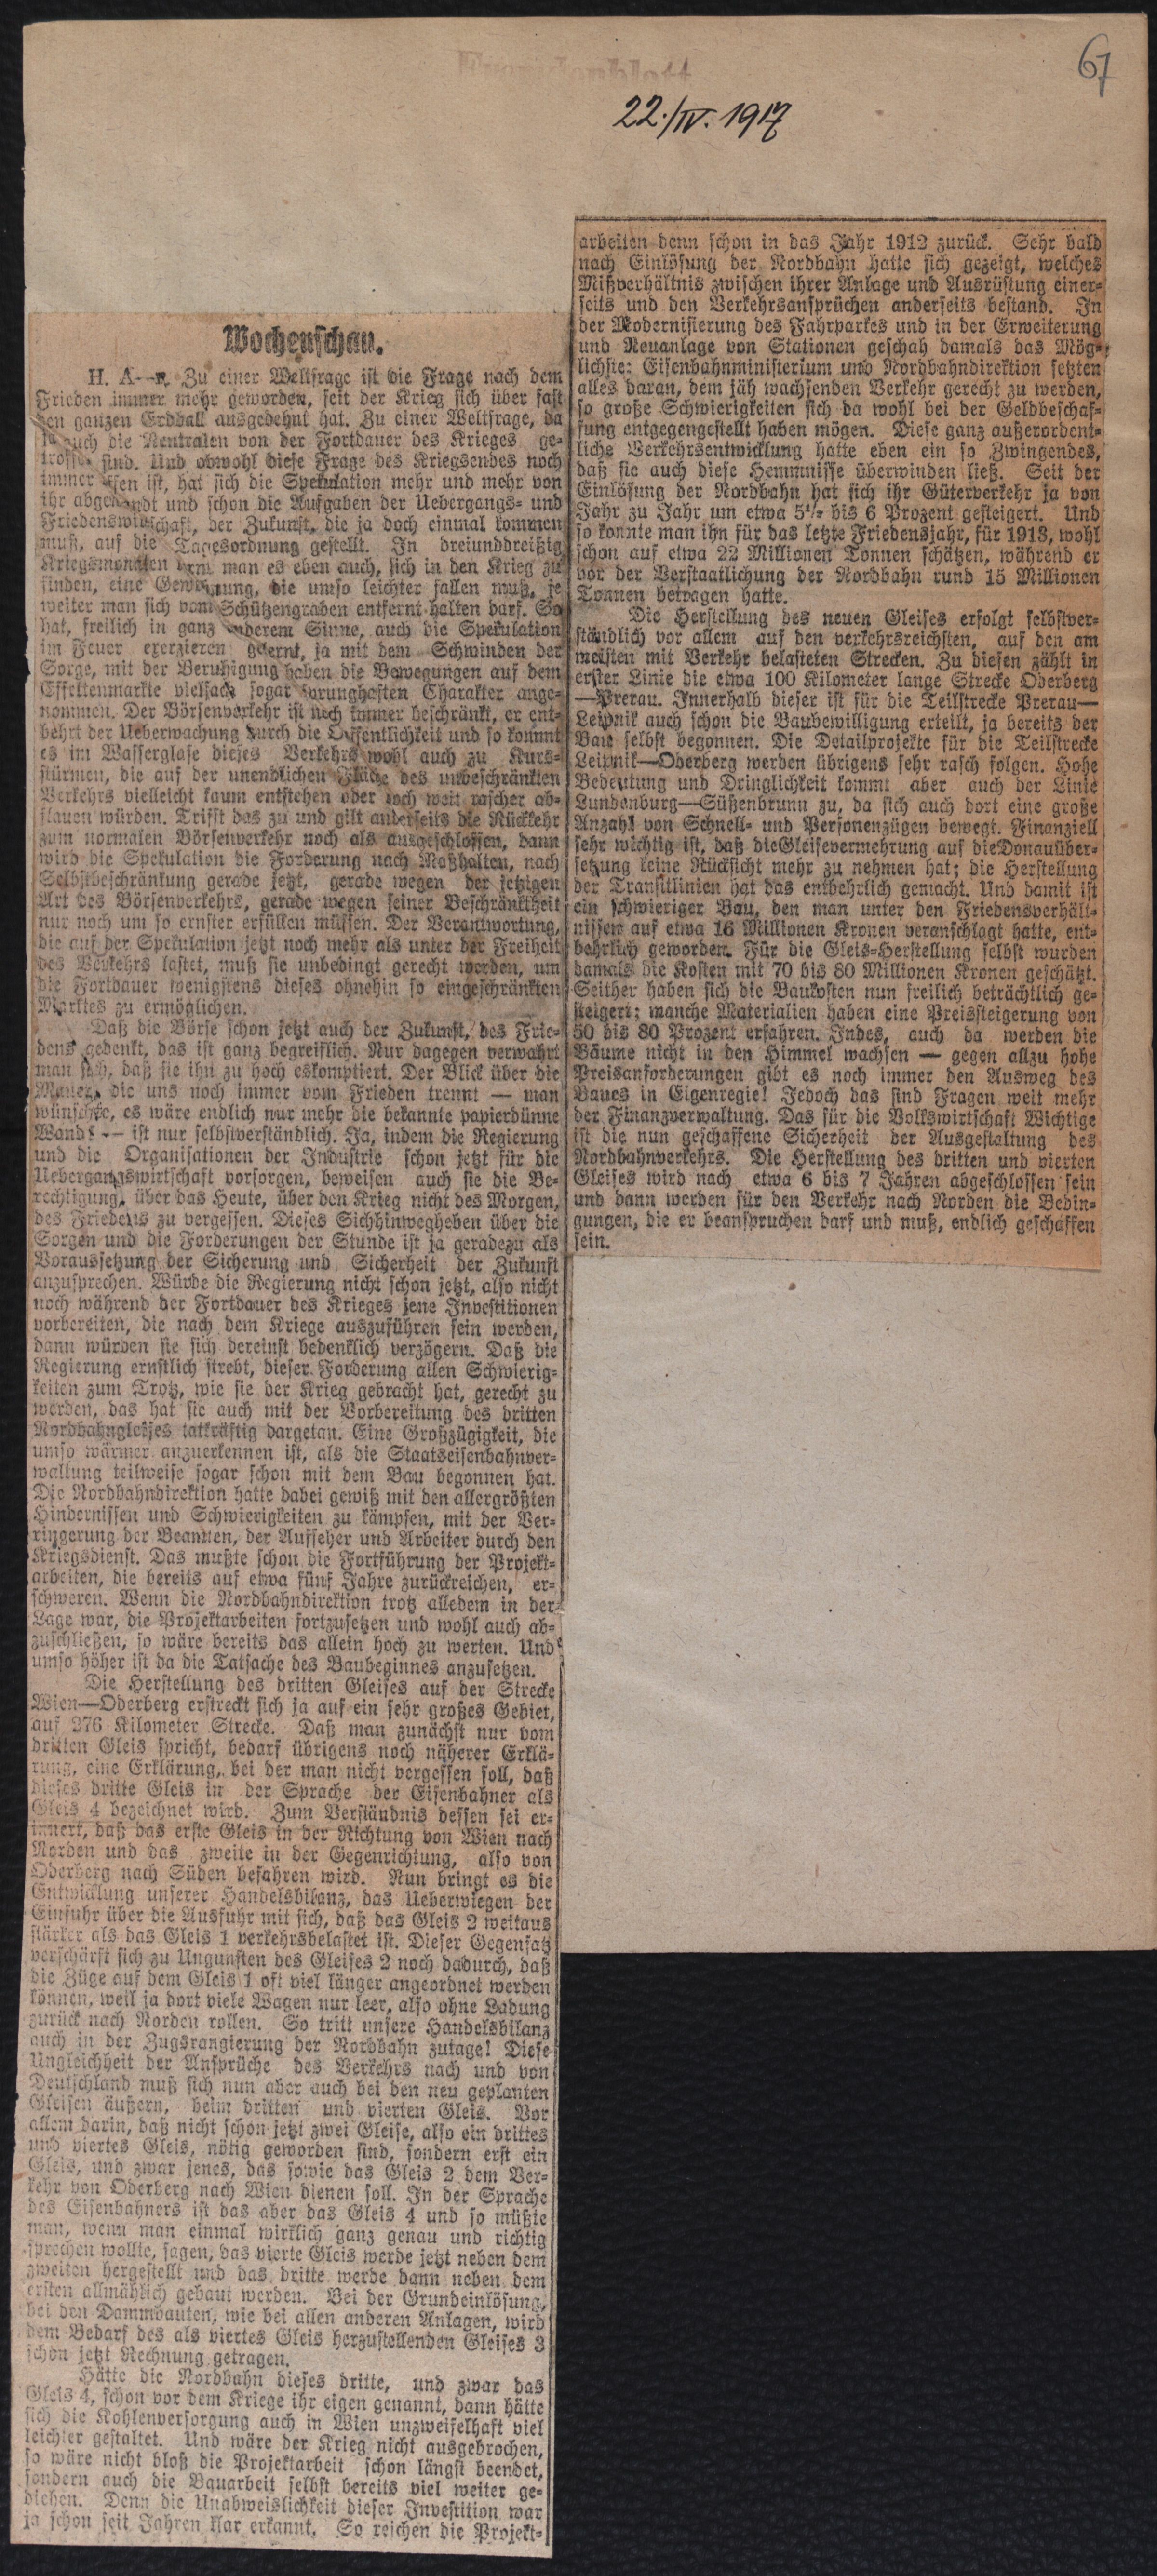 67
Fremdenblatt
22./IV. 1917
Wochenschau.
H. A—r. Zu einer Weltfrage ist die Frage nach dem
Frieden immer mehr geworden, seit der Krieg sich über fast
den ganzen Erdball ausgedehnt hat. Zu einer Weltfrage, da
ja auch die Neutralen von der Fortdauer des Krieges ge-
troffen sind. Und obwohl diese Frage des Kriegsendes noch
immer offen ist, hat sich die Spekulation mehr und mehr von
ihr abgewandt und schon die Aufgaben der Uebergangs- und
Friedenswirtschaft, der Zukunft, die ja doch einmal kommen
muß, auf die Tagesordnung gestellt. In dreiunddreißig
Kriegsmonaten lernt man es eben auch, sich in den Krieg zu
finden, eine Gewöhnung, die umso leichter fallen muß, je
weiter man sich vom Schützengraben entfernt halten darf. So
hat, freilich in ganz anderem Sinne, auch die Spekulation
im Feuer exerzieren gelernt, ja mit dem Schwinden der
Sorge, mit der Beruhigung haben die Bewegungen auf dem
Effektenmarkte vielfach sogar sprunghaften Charakter ange-
nommen. Der Börsenverkehr ist noch immer beschränkt, er ent-
behrt der Ueberwachung durch die Oeffentlichkeit und so kommt
es im Wasserglase dieses Verkehrs wohl auch zu Kurs-
stürmen, die auf der unendlichen Fläche des unbeschränkten
Verkehrs vielleicht kaum entstehen oder doch weit rascher ab-
flauen würden. Trifft das zu und gilt anderseits die Rückkehr
zum normalen Börsenverkehr noch als ausgeschlossen, dann
wird die Spekulation die Forderung nach Maßhalten, nach
Selbstbeschränkung gerade jetzt, gerade wegen der jetzigen
Art des Börsenverkehrs, gerade wegen seiner Beschränktheit
nur noch um so ernster erfüllen müssen. Der Verantwortung,
die auf der Spekulation jetzt noch mehr als unter der Freiheit
des Verkehrs lastet, muß sie unbedingt gerecht werden, um
die Fortdauer wenigstens dieses ohnehin so eingeschränkten
Marktes zu ermöglichen.
Daß die Börse schon jetzt auch der Zukunft, des Frie-
dens gedenkt, das ist ganz begreiflich. Nur dagegen verwahrt
man sich, daß sie ihn zu hoch eskomptiert. Der Blick über die
Mauer, die uns noch immer vom Frieden trennt — man
wünschte, es wäre endlich nur mehr die bekannte papierdünne
Wand! — ist nur selbstverständlich. Ja, indem die Regierung
und die Organisationen der Industrie schon jetzt für die
Uebergangswirtschaft vorsorgen, beweisen auch sie die Be-
rechtigung, über das Heute, über den Krieg nicht des Morgen,
des Friedens zu vergessen. Dieses Sichhinwegheben über die
Sorgen und die Forderungen der Stunde ist ja geradezu als
Voraussetzung der Sicherung und Sicherheit der Zukunft
anzusprechen. Würde die Regierung nicht schon jetzt, also nicht
noch während der Fortdauer des Krieges jene Investitionen
vorbereiten, die nach dem Kriege auszuführen sein werden,
dann würden sie sich dereinst bedenklich verzögern. Daß die
Regierung ernstlich strebt, dieser Forderung allen Schwierig-
keiten zum Trotz, wie sie der Krieg gebracht hat, gerecht zu
werden, das hat sie auch mit der Vorbereitung des dritten
Nordbahngleises tatkräftig dargetan. Eine Großzügigkeit, die
umso wärmer anzuerkennen ist, als die Staatseisenbahnver-
waltung teilweise sogar schon mit dem Bau begonnen hat.
Die Nordbahndirektion hatte dabei gewiß mit den allergrößten
Hindernissen und Schwierigkeiten zu kämpfen, mit der Ver-
ringerung der Beamten, der Aufseher und Arbeiter durch den
Kriegsdienst. Das mußte schon die Fortführung der Projekt-
arbeiten, die bereits auf etwa fünf Jahre zurückreichen, er-
schweren. Wenn die Nordbahndirektion trotz alledem in der
Lage war, die Projektarbeiten fortzusetzen und wohl auch ab-
zuschließen, so wäre bereits das allein hoch zu werten. Und
umso höher ist da die Tatsache des Baubeginnes anzusetzen.
Die Herstellung des dritten Gleises auf der Strecke
Wien—Oderberg erstreckt sich ja auf ein sehr großes Gebiet,
auf 276 Kilometer Strecke. Daß man zunächst nur vom
dritten Gleis spricht, bedarf übrigens noch näherer Erklä-
rung, eine Erklärung, bei der man nicht vergessen soll, daß
dieses dritte Gleis in der Sprache der Eisenbahner als
Gleis 4 bezeichnet wird. Zum Verständnis dessen sei er-
innert, daß das erste Gleis in der Richtung von Wien nach
Norden und das zweite in der Gegenrichtung, also von
Oderberg nach Süden befahren wird. Nun bringt es die
Entwicklung unserer Handelsbilanz, das Ueberwiegen der
Einfuhr über die Ausfuhr mit sich, daß das Gleis 2 weitaus
stärker als das Gleis 1 verkehrsbelastet ist. Dieser Gegensatz
verschärft sich zu Ungunsten des Gleises 2 noch dadurch, daß
die Züge auf dem Gleis 1 oft viel länger angeordnet werden
können, weil ja dort viele Wagen nur leer, also ohne Ladung
zurück nach Norden rollen. So tritt unsere Handelsbilanz
auch in der Zugsrangierung der Nordbahn zutage! Diese
Ungleichheit der Ansprüche des Verkehrs nach und von
Deutschland muß sich nun aber auch bei den neu geplanten
Gleisen äußern, beim dritten und vierten Gleis. Vor
allem darin, daß nicht schon jetzt zwei Gleise, also ein drittes
und viertes Gleis, nötig geworden sind, sondern erst ein
Gleis, und zwar jenes, das sowie das Gleis 2 dem Ver-
kehr von Oderberg nach Wien dienen soll. In der Sprache
des Eisenbahners ist das aber das Gleis 4 und so müßte
man, wenn man einmal wirklich ganz genau und richtig
sprechen wollte, sagen, das vierte Gleis werde jetzt neben dem
zweiten hergestellt und das dritte werde dann neben dem
ersten allmählich gebaut werden. Bei der Grundeinlösung,
bei den Dammbauten, wie bei allen anderen Anlagen, wird
dem Bedarf des als viertes Gleis herzustellenden Gleises 3
schon jetzt Rechnung getragen.
Hätte die Nordbahn dieses dritte, und zwar das
Gleis 4, schon vor dem Kriege ihr eigen genannt, dann hätte
sich die Kohlenversorgung auch in Wien unzweifelhaft viel
leichter gestaltet. Und wäre der Krieg nicht ausgebrochen,
so wäre nicht bloß die Projektarbeit schon längst beendet,
sondern auch die Bauarbeit selbst bereits viel weiter ge-
diehen. Denn die Unabweislichkeit dieser Investition war
ja schon seit Jahren klar erkannt. So reichen die Projekt-
arbeiten denn schon in das Jahr 1912 zurück. Sehr bald
nach Einlösung der Nordbahn hatte sich gezeigt, welches
Mißverhältnis zwischen ihrer Anlage und Ausrüstung einer-
seits und den Verkehrsansprüchen anderseits bestand. In
der Modernisierung des Fahrparkes und in der Erweiterung
und Neuanlage von Stationen geschah damals das Mög-
lichste: Eisenbahnministerium und Nordbahndirektion setzten
alles daran, dem jäh wachsenden Verkehr gerecht zu werden,
so große Schwierigkeiten sich da wohl bei der Geldbeschaf-
fung entgegengestellt haben mögen. Diese ganz außerordent-
liche Verkehrsentwicklung hatte eben ein so Zwingendes,
daß sie auch diese Hemmnisse überwinden ließ. Seit der
Einlösung der Nordbahn hat sich ihr Güterverkehr ja von
Jahr zu Jahr um etwa 5½ bis 6 Prozent gesteigert. Und
so konnte man ihn für das letzte Friedensjahr, für 1913, wohl
schon auf etwa 22 Millionen Tonnen schätzen, während er
vor der Verstaatlichung der Nordbahn rund 15 Millionen
Tonnen betragen hatte.
Die Herstellung des neuen Gleises erfolgt selbstver-
ständlich vor allem auf den verkehrsreichsten, auf den am
meisten mit Verkehr belasteten Strecken. Zu diesen zählt in
erster Linie die etwa 100 Kilometer lange Strecke Oderberg
—Prerau. Innerhalb dieser ist für die Teilstrecke Prerau—
Leipnik auch schon die Baubewilligung erteilt, ja bereits der
Bau selbst begonnen. Die Detailprojekte für die Teilstrecke
Leipnik—Oderberg werden übrigens sehr rasch folgen. Hohe
Bedeutung und Dringlichkeit kommt aber auch der Linie
Lundenburg—Süßenbrunn zu, da sich auch dort eine große
Anzahl von Schnell- und Personenzügen bewegt. Finanziell
sehr wichtig ist, daß dieGleisevermehrung auf dieDonauüber-
setzung keine Rücksicht mehr zu nehmen hat; die Herstellung
der Transitlinien hat das entbehrlich gemacht. Und damit ist
ein schwieriger Bau, den man unter den Friedensverhält-
nissen auf etwa 16 Millionen Kronen veranschlagt hatte, ent-
behrlich geworden. Für die Gleis-Herstellung selbst wurden
damals die Kosten mit 70 bis 80 Millionen Kronen geschätzt.
Seither haben sich die Baukosten nun freilich beträchtlich ge-
steigert; manche Materialien haben eine Preissteigerung von
50 bis 80 Prozent erfahren. Indes, auch da werden die
Bäume nicht in den Himmel wachsen — gegen allzu hohe
Preisanforderungen gibt es noch immer den Ausweg des
Baues in Eigenregie! Jedoch das sind Fragen weit mehr
der Finanzverwaltung. Das für die Volkswirtschaft Wichtige
ist die nun geschaffene Sicherheit der Ausgestaltung des
Nordbahnverkehrs. Die Herstellung des dritten und vierten
Gleises wird nach etwa 6 bis 7 Jahren abgeschlossen sein
und dann werden für den Verkehr nach Norden die Bedin-
gungen, die er beanspruchen darf und muß, endlich geschaffen
sein.